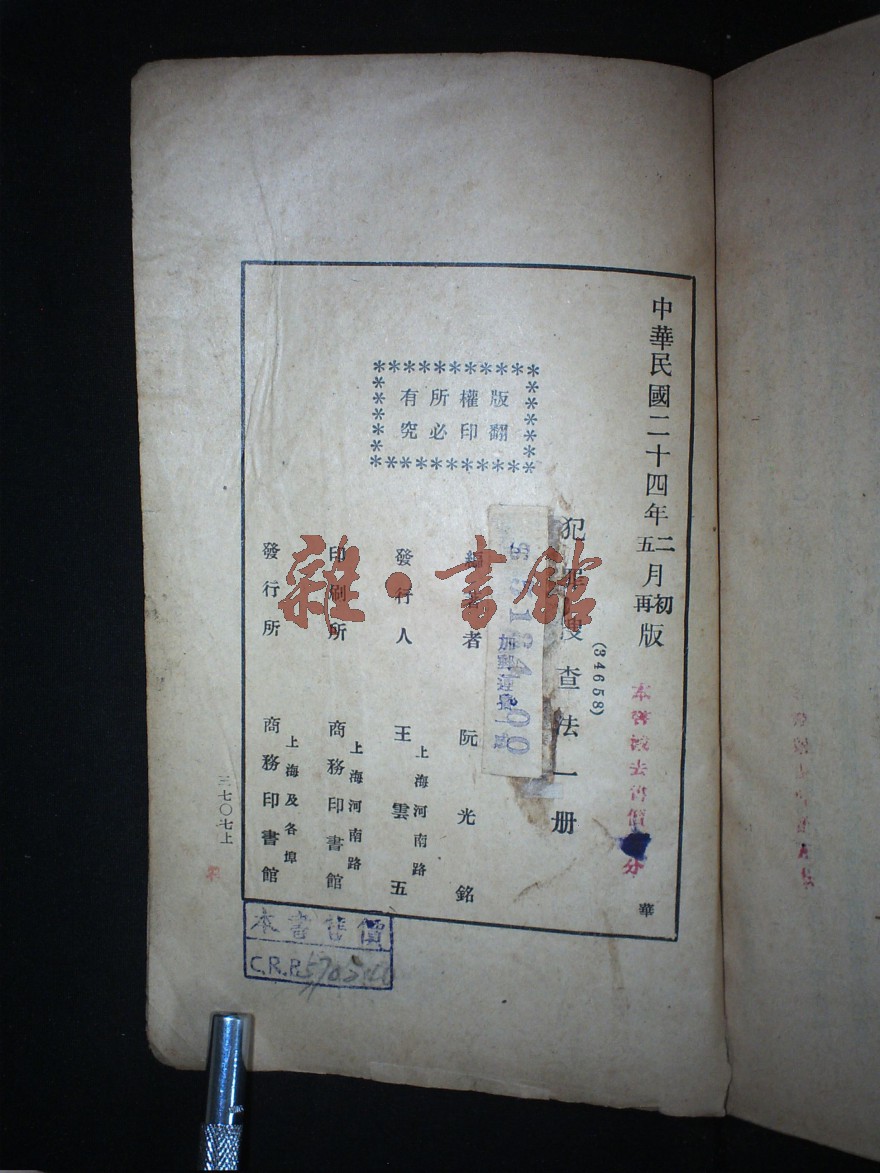 中華民國二十四年二月初版
五再
(34658)
犯罪搜查法一册
版權所有
翻印必究
編著者 阮光銘
發行人 王雲五
上海河南路
印刷所 商務印書館
上海河南路
發行所 商務印書館
上海及各埠
三七〇七上
華
本書售價
C.R.P.
雜·書館